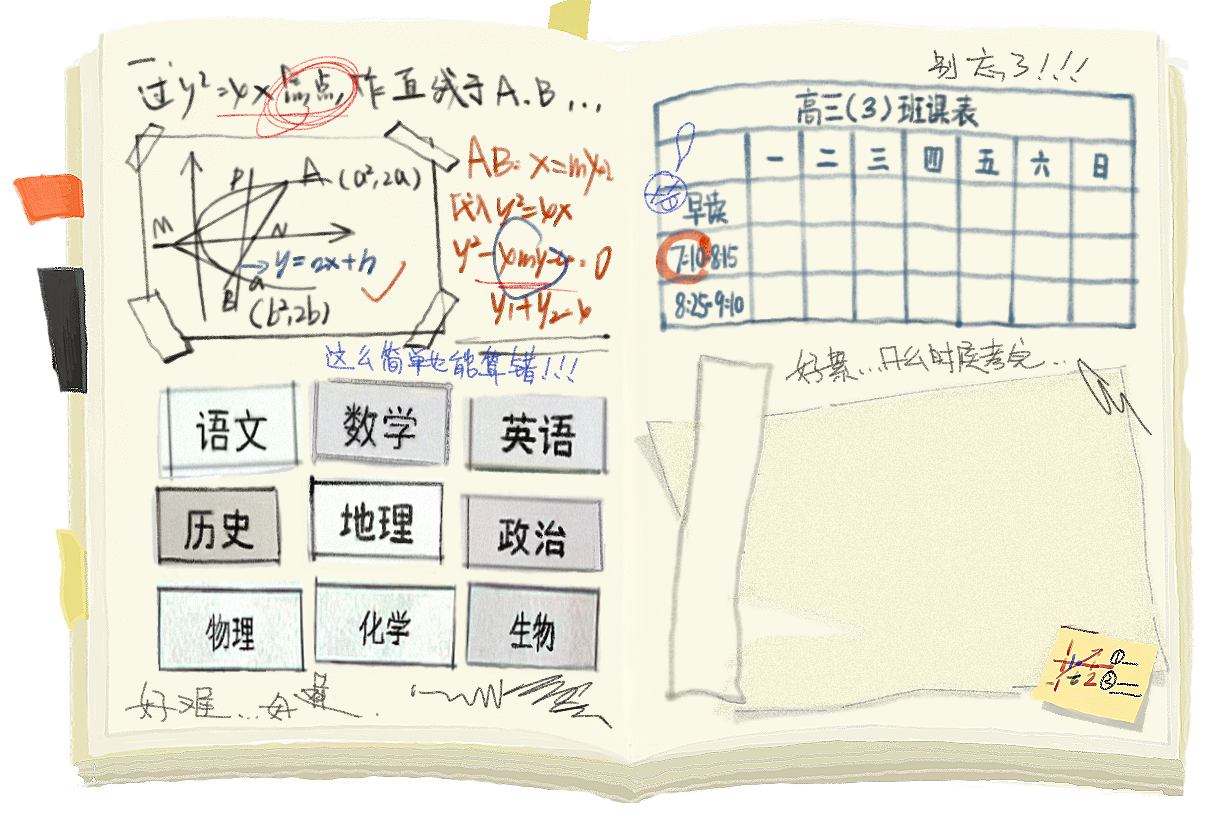 一.
过y²=4x焦点,作直线于A.B...
P
A (a²,2a)
M
N
y=2x+b
a
B
(b²,2b)
AB: x=my+2
代入y²=4x
y²-4my-4=0
y₁+y₂=4
这么简单也能算错!!!
语文 数学 英语
历史 地理 政治
物理 化学 生物
好难...好
别忘了!!!
高三(3)班课表
一 二 三 四 五 六 日
早读
7:10-8:15
8:25-9:10
好累...什么时候考完...
① ②